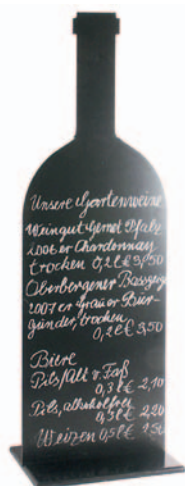 Unsere Gartenweine
Weingut Gernot Pfalz
2006er Chardonnay
trocken 0,2l€ 3,50
Oberbergener Bassgeige
2007er Grauer Bur-
gunder, trocken
0,2l€ 3,50
Biere
Pils/Alt v. Faß
0,3l€ 2,10
Pils, alkoholfrei
0,5l€ 2,20
Weizen 0,5l€